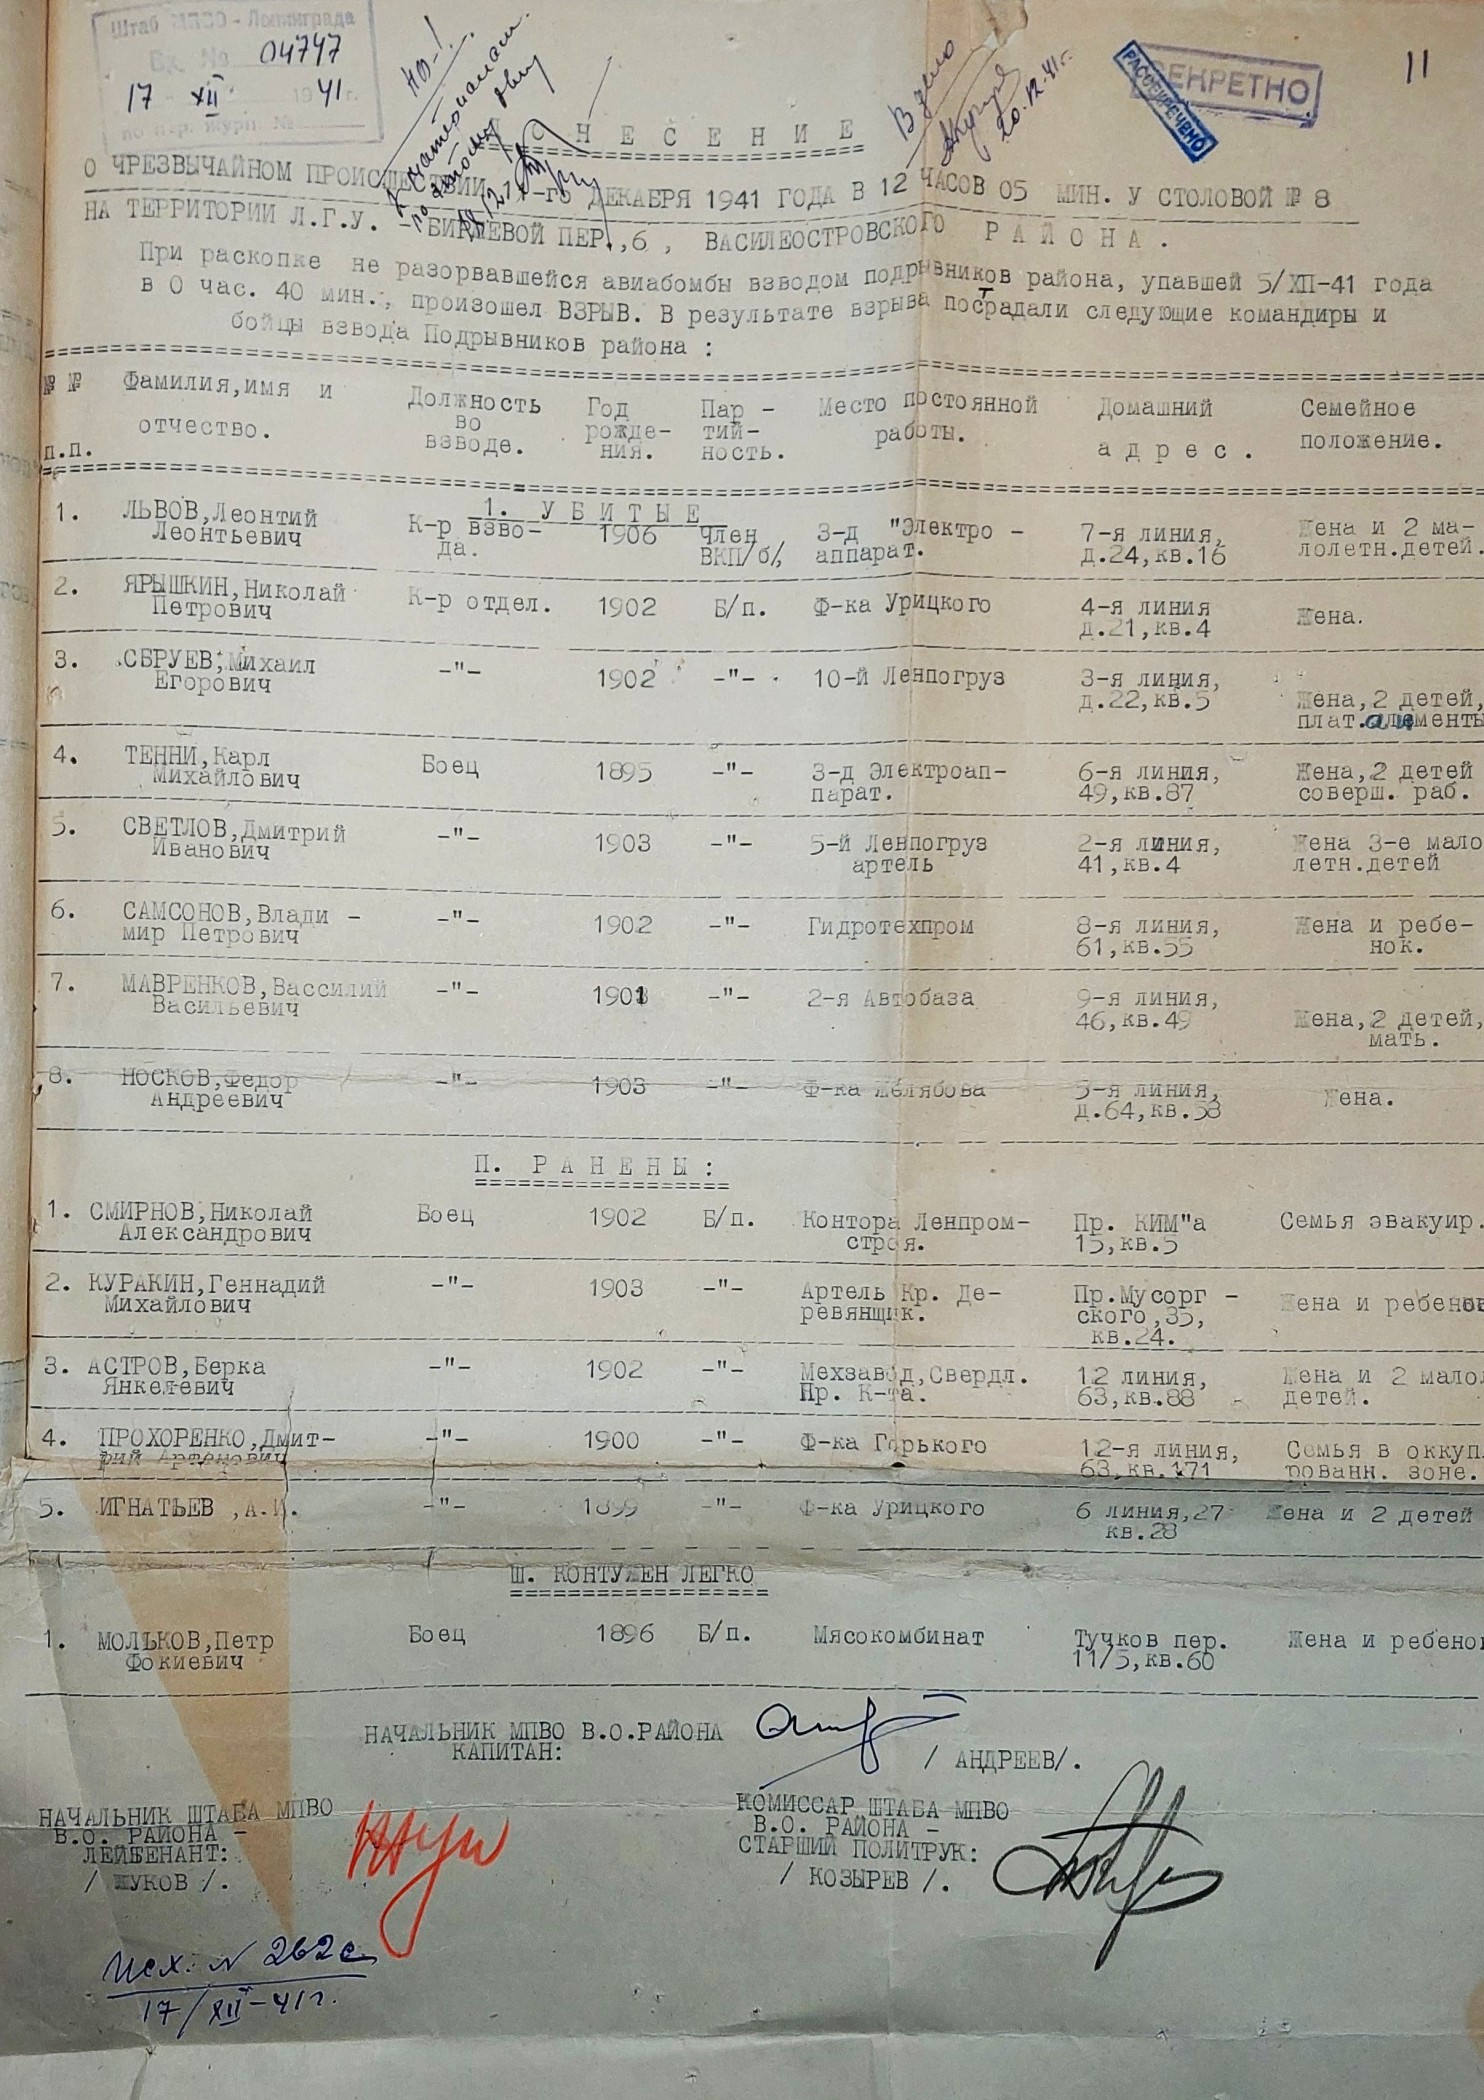 Штаб МПВО - Ленинграда
Вх. № 04747
17 XII 1941 г.
НО-1
В дело
20.12.41 г.
РАССЕКРЕЧЕНО
СЕКРЕТНО
11
НЕСЕНИЕ
О ЧРЕЗВЫЧАЙНОМ ПРОИСШЕСТВИИ -го ДЕКАБРЯ 1941 ГОДА В 12 ЧАСОВ 05 МИН. У СТОЛОВОЙ № 8
НА ТЕРРИТОРИИ Л.Г.У. - БИРЖЕВОЙ ПЕР.,6 , ВАСИЛЕОСТРОВСКОГО РАЙОНА.
При раскопке не разорвавшейся авиабомбы взводом подрывников района, упавшей 5/ХП-41 года
в 0 час. 40 мин., произошел ВЗРЫВ. В результате взрыва пострадали следующие командиры и
бойцы взвода Подрывников района :
№ № п.п. Фамилия,имя и отчество. Должность во взводе. Год рожде- ния. Пар - тий- ность. Место постоянной работы. Домашний адрес. Семейное положение.
1. УБИТЫЕ
1. ЛЬВОВ,Леонтий К-р взво- 1906 Член З-д "Электро - 7-я линия, Жена и 2 ма-
Леонтьевич да. ВКП/б/, аппарат. д.24,кв.16 лолетн.детей.
2. ЯРЫШКИН,Николай К-р отдел. 1902 Б/п. Ф-ка Урицкого 4-я линия Жена.
Петрович д.21,кв.4
3. СБРУЕВ,Михаил -"- 1902 -"- 10-й Ленпогруз 3-я линия, Жена,2 детей,
Егорович д.22,кв.5 плат.алименты
4. ТЕННИ,Карл Боец 1895 -"- З-д Электроап- 6-я линия, Жена,2 детей
Михайлович парат. 49,кв.87 соверш. раб.
5. СВЕТЛОВ,Дмитрий -"- 1903 -"- 5-й Ленпогруз 2-я линия, Жена 3-е мало
Иванович артель 41,кв.4 летн.детей
6. САМСОНОВ,Влади - -"- 1902 -"- Гидротехпром 8-я линия, Жена и ребе-
мир Петрович 61,кв.55 нок.
7. МАВРЕНКОВ,Вассилий -"- 1901 -"- 2-я Автобаза 9-я линия, Жена,2 детей,
Васильевич 46,кв.49 мать.
8. НОСКОВ,Федор -"- 1903 -"- Ф-ка Желябова 5-я линия, Жена.
Андреевич д.64,кв.58
П. РАНЕНЫ :
1. СМИРНОВ,Николай Боец 1902 Б/п. Контора Ленпром- Пр. КИМ"а Семья эвакуир.
Александрович строя. 15,кв.5
2. КУРАКИН,Геннадий -"- 1903 -"- Артель Кр. Де- Пр.Мусорг - Жена и ребенок
Михайлович ревянщик. ского,35,
кв.24.
3. АСТРОВ,Берка -"- 1902 -"- Мехзавод,Свердл. 12 линия, Жена и 2 малол
Янкелевич Пр. К-та. 63,кв.88 детей.
4. ПРОХОРЕНКО,Дмит- -"- 1900 -"- Ф-ка Горького 12-я линия, Семья в оккуп
рий Артемович 63,кв.171 рованн. зоне.
5. ИГНАТЬЕВ ,А.И. -"- 1899 -"- Ф-ка Урицкого 6 линия,27 Жена и 2 детей
кв.28
Ш. КОНТУЖЕН ЛЕГКО
1. МОЛЬКОВ,Петр Боец 1896 Б/п. Мясокомбинат Тучков пер. Жена и ребенок
Фокиевич 11/5,кв.60
НАЧАЛЬНИК МПВО В.О.РАЙОНА
КАПИТАН: / АНДРЕЕВ/.
НАЧАЛЬНИК ШТАБА МПВО
В.О. РАЙОНА -
ЛЕЙТЕНАНТ:
/ ЖУКОВ /.
КОМИССАР ШТАБА МПВО
В.О. РАЙОНА -
СТАРШИЙ ПОЛИТРУК:
/ КОЗЫРЕВ /.
Исх. № 262с
17/XII-41г.